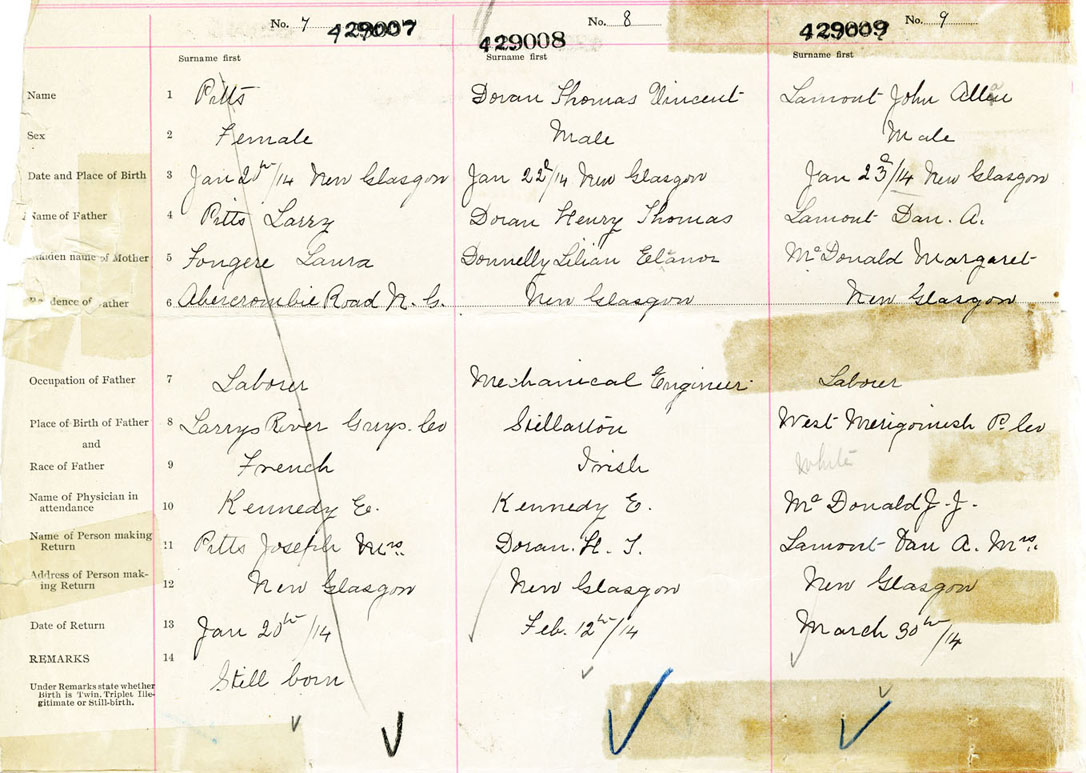 No. 7 429007 No. 8 429008 No. 9 429009
Surname first Surname first Surname first
Name 1 Pitts Doran Thomas Vincent Lamont John Allan
Sex 2 Female Male Male
Date and Place of Birth 3 Jan 20th/14 New Glasgow Jan 22d/14 New Glasgow Jan 23d/14 New Glasgow
Name of Father 4 Pitts Larry Doran Henry Thomas Lamont Dan. A.
Maiden name of Mother 5 Fongere Laura Donnelly Lilian Elanor McDonald Margaret
Residence of Father 6 Abercrombie Road N. G. New Glasgow New Glasgow
Occupation of Father 7 Laborer Mechanical Engineer Laborer
Place of Birth of Father 8 Larrys River Guys. Co Stellarton West Merigomish P. Co
and
Race of Father 9 French Irish White
Name of Physician in
attendance 10 Kennedy E. Kennedy E. McDonald J. J.
Name of Person making
Return 11 Pitts Joseph Mrs. Doran. H. T. Lamont Dan A. Mrs.
Address of Person mak-
ing Return 12 New Glasgow New Glasgow New Glasgow
Date of Return 13 Jan 20th/14 Feb. 12th/14 March 30th/14
REMARKS 14
Still born
Under Remarks state whether
Birth is Twin, Triplet, Ille-
gitimate or Still-birth.